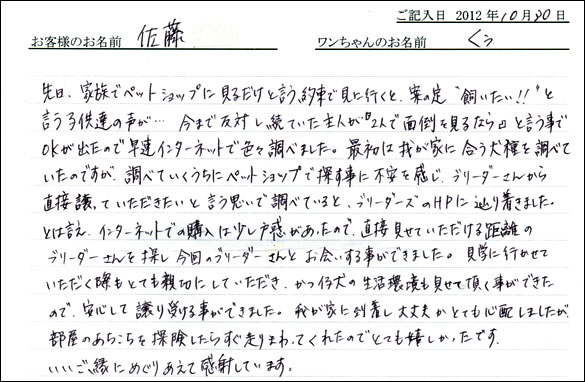 ご記入日 2012年10月30日
お客様のお名前 佐藤 ワンちゃんのお名前 くぅ
先日、家族でペットショップに見るだけと言う約束で見に行くと、案の定 "飼いたい!!" と
言う子供達の声が… 今まで反対し続けていた主人が『2人で面倒を見るなら』と言う事で
OKが出たので早速インターネットで色々調べました。最初は我が家に合う犬種を調べて
いたのですが、調べていくうちにペットショップで探す事に不安を感じ、ブリーダーさんから
直接譲っていただきたいと言う思いで調べていると、ブリーダーズのHPに辿り着きました。
とは言え、インターネットでの購入は少し戸惑があったので、直接見せていただける距離の
ブリーダーさんを探し今回のブリーダーさんとお会いする事ができました。見学に行かせて
いただく際もとても親切にしていただき、かつ仔犬の生活環境も見せて頂く事ができた
ので、安心して譲り受ける事ができました。我が家に到着し大丈夫かとても心配しましたが、
部屋のあちこちを探険したらすぐ走りまわってくれたのでとても嬉しかったです。
いいご縁にめぐりあえて感謝しています。